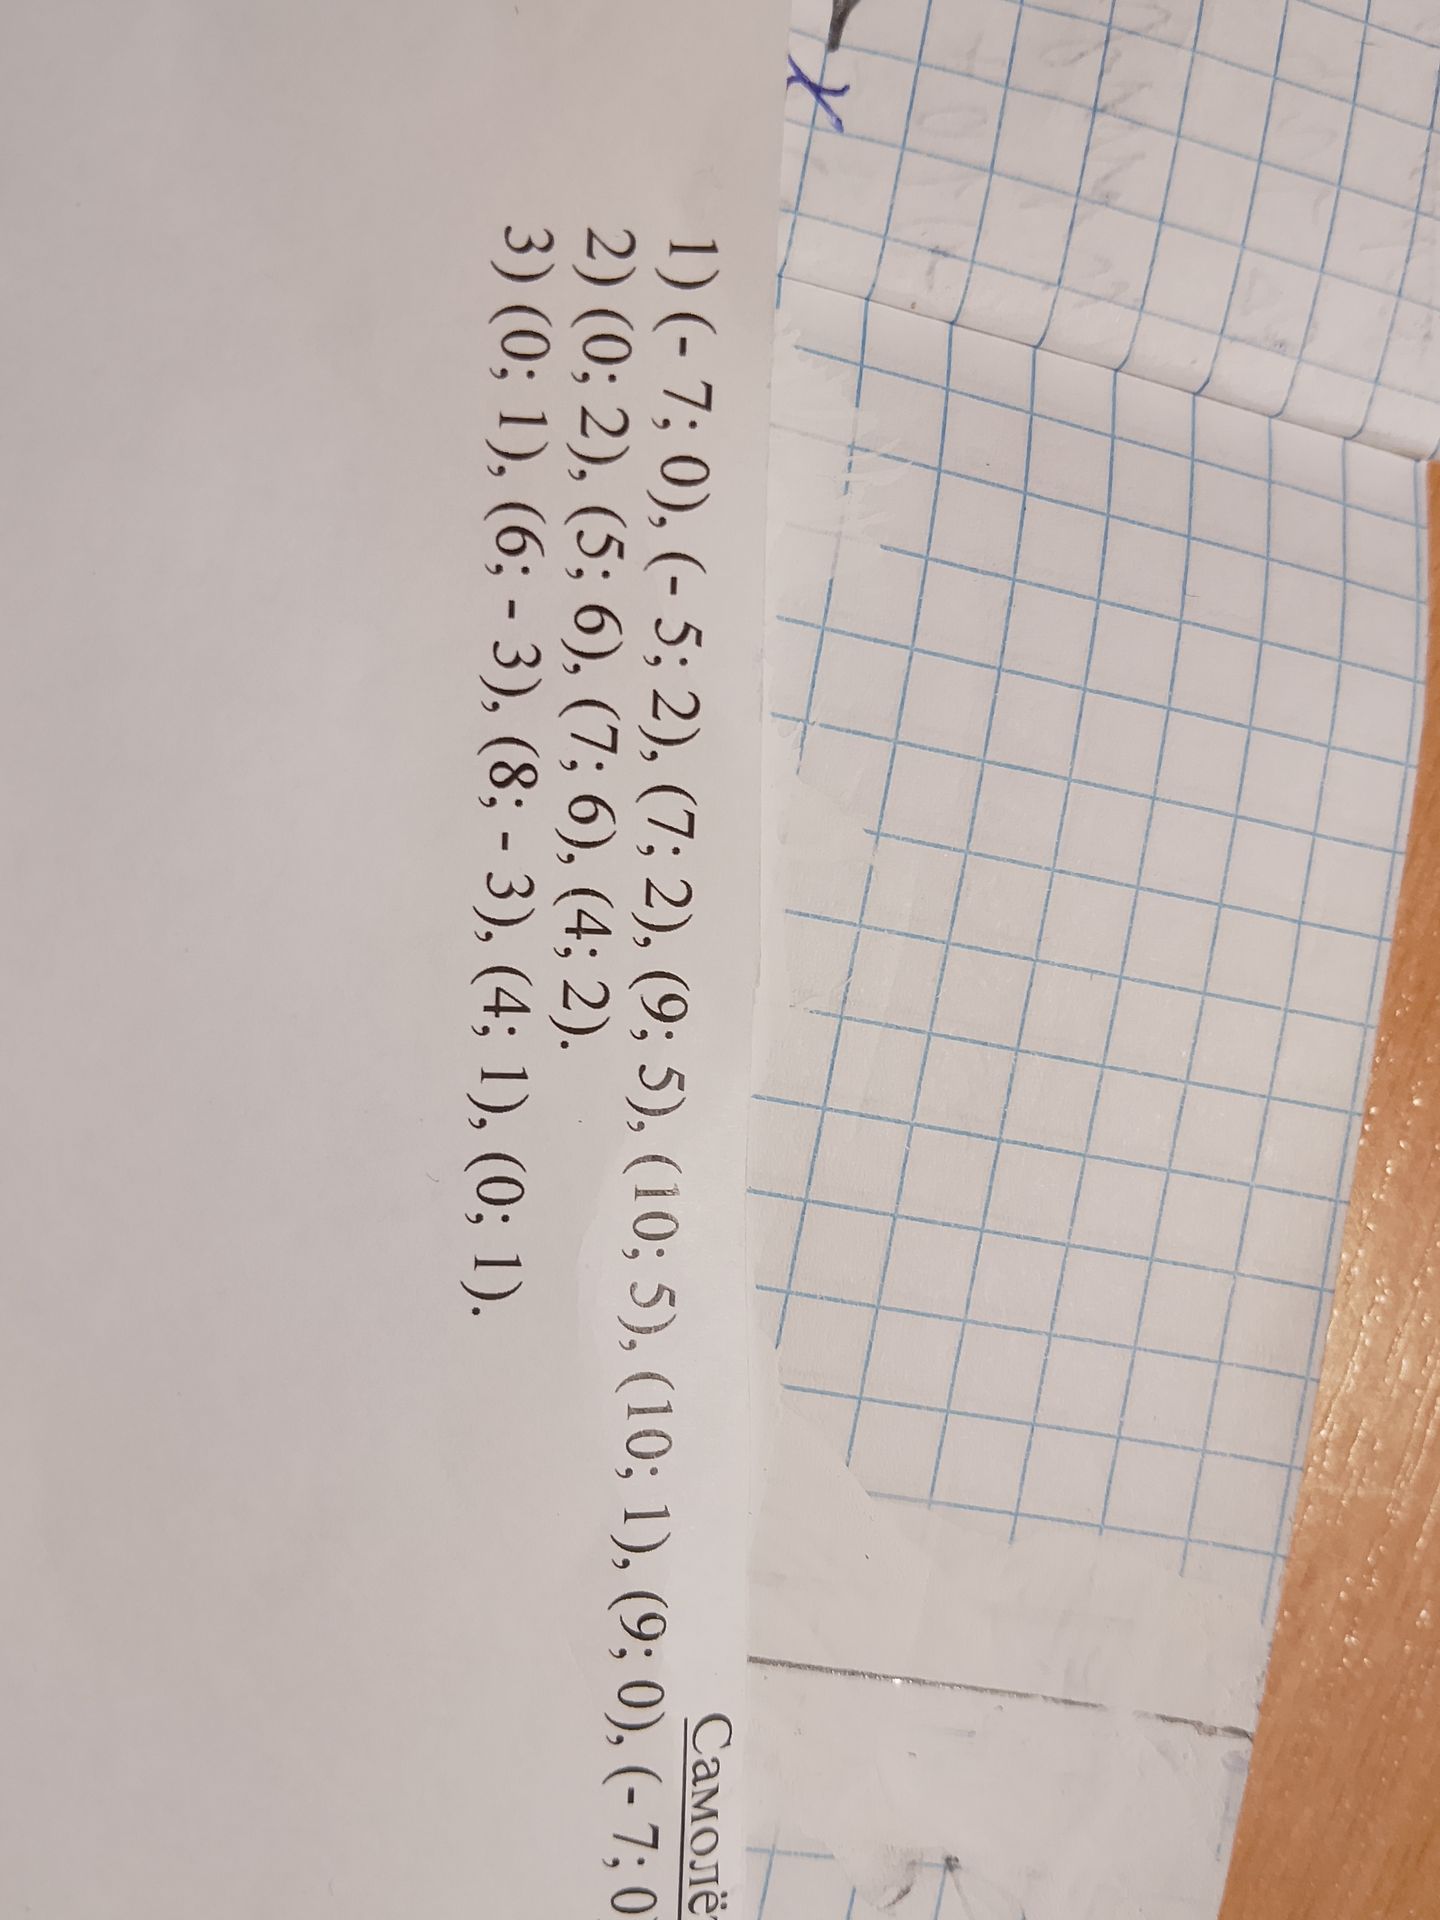 Самолё
1) (- 7; 0), (- 5; 2), (7; 2), (9; 5), (10; 5), (10; 1), (9; 0), (- 7; 0)
2) (0; 2), (5; 6), (7; 6), (4; 2).
3) (0; 1), (6; - 3), (8; - 3), (4; 1), (0; 1).
x